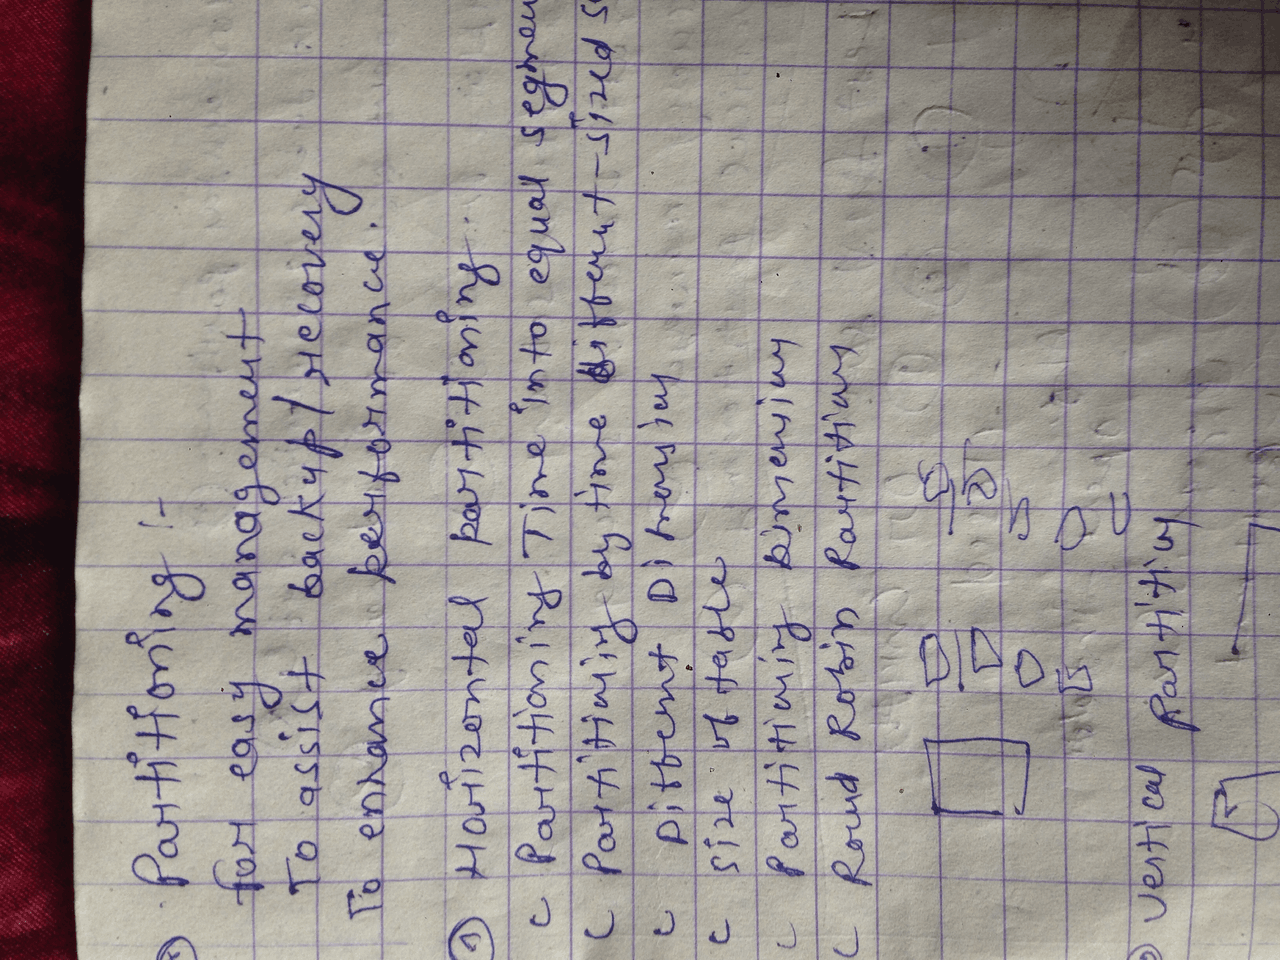 Partitioning :-
for easy management
To assist backup/recovery
To enhance performance.
① Horizontal partitioning.
C Partitioning Time into equal segmen
C Partitiining by time different-sized s
C Different Dimension
C size of table
C Partitioning Dimension
C Round Robin Partition
Vertical Partition